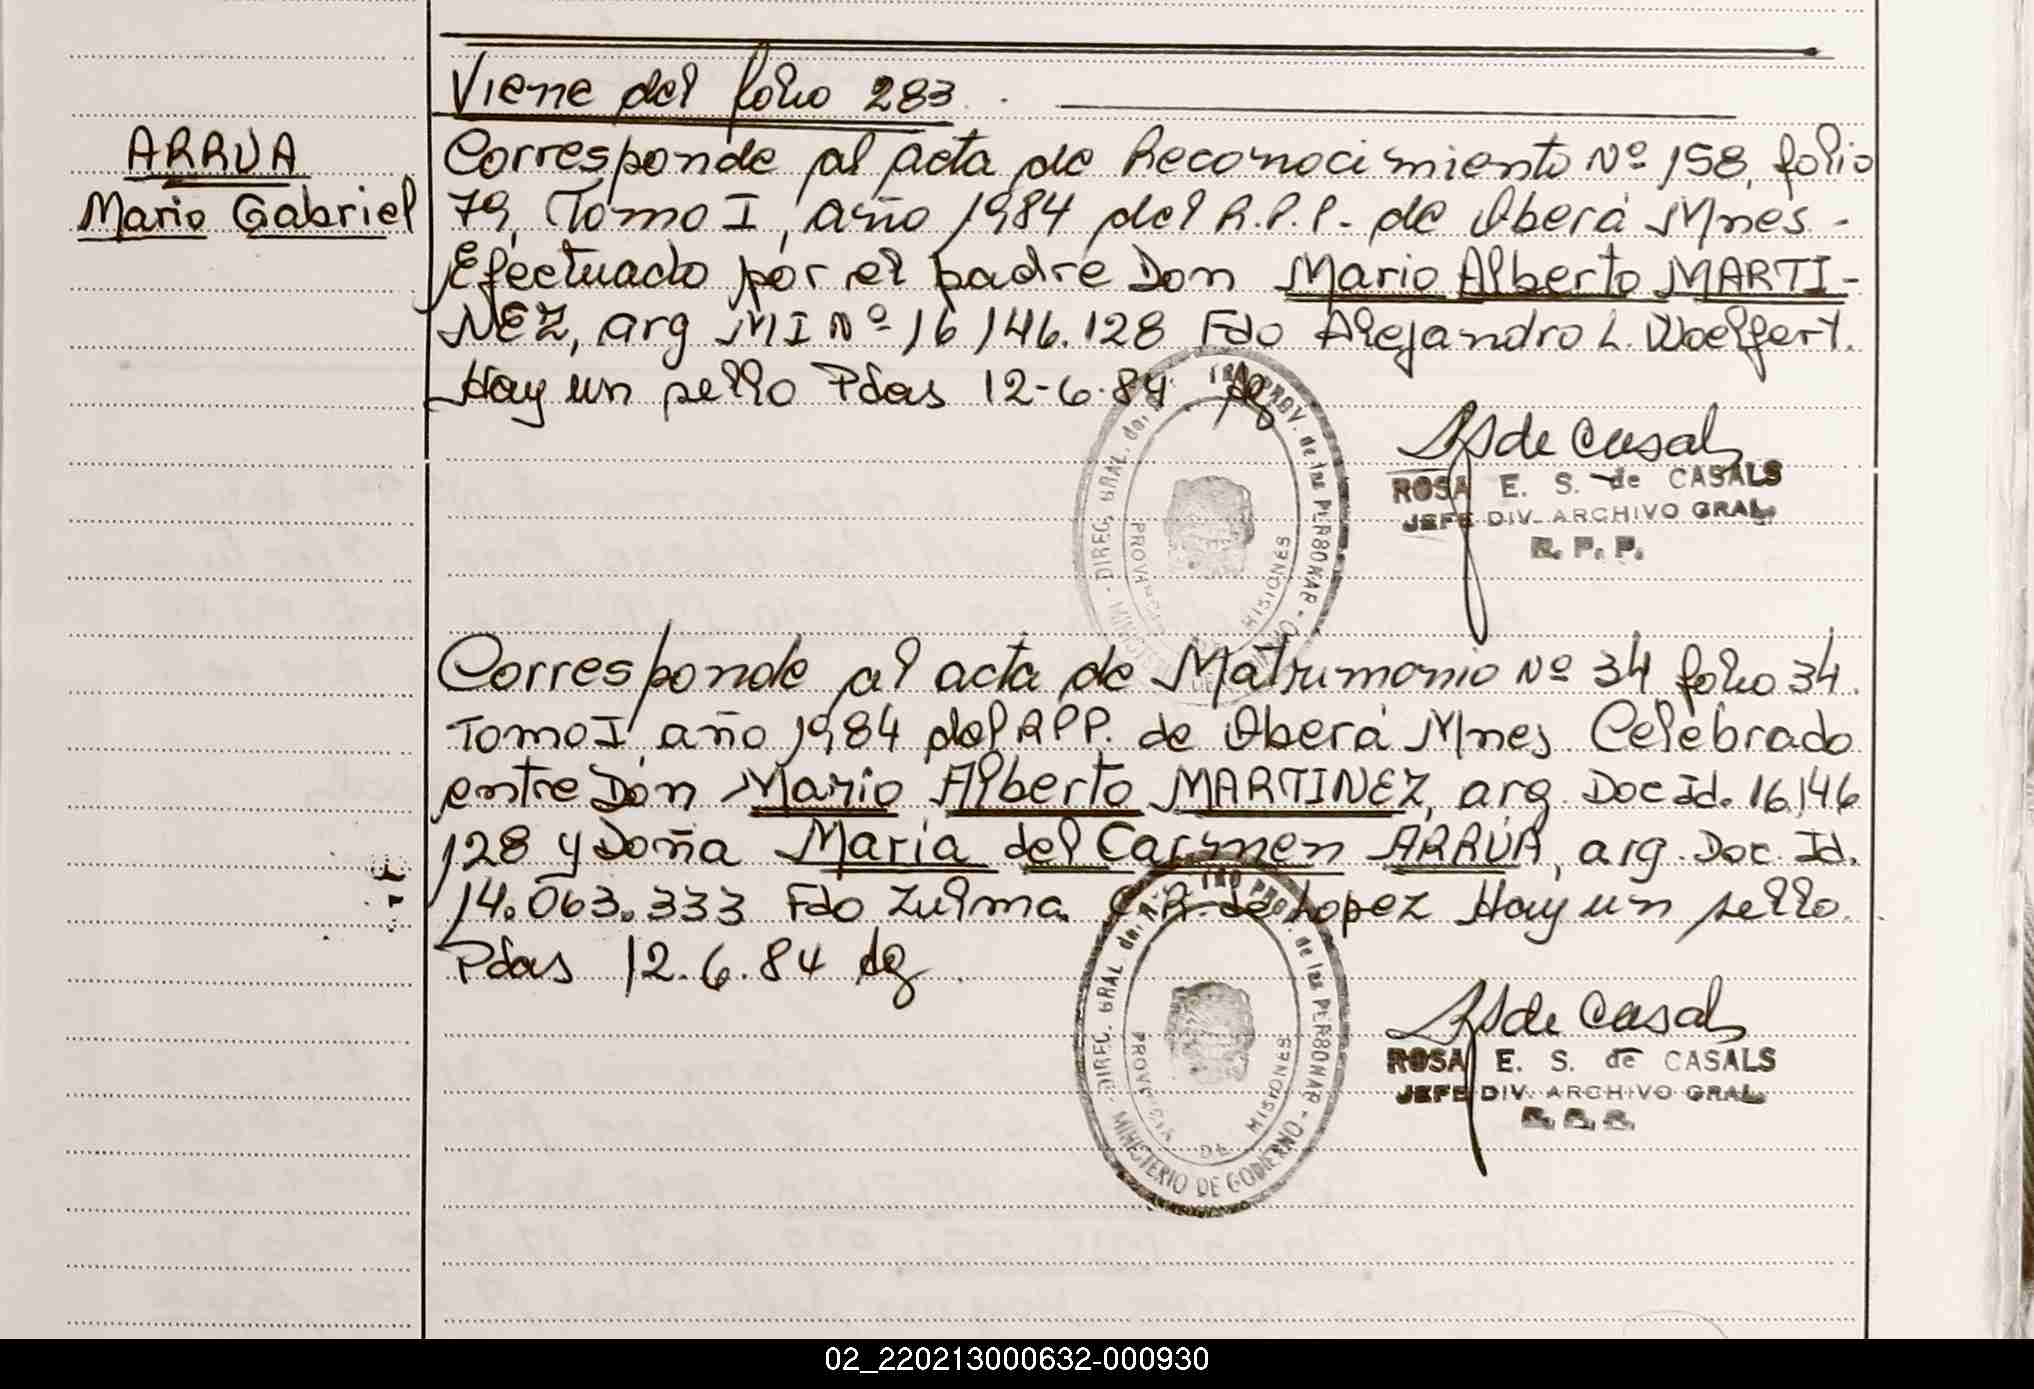 Viene del folio 283.
ARRUA
Mario Gabriel
Corresponde al acta de Reconocimiento Nº 158, folio
79, Tomo I, año 1984 del R.P.P. de Oberá Mnes.-
Efectuado por el padre Don Mario Alberto MARTI-
NEZ, arg MI Nº 16 146.128 Fdo Alejandro L. Woelfert.
Hay un sello Pdas 12-6-84 dg
ROSA E. S. de CASALS
JEFE DIV. ARCHIVO GRAL.
R. P. P.
DIREC. GRAL. del REG. PROV. de las PERSONAS - MINISTERIO DE GOBIERNO -
PROVINCIA DE MISIONES
Corresponde al acta de Matrimonio Nº 34 folio 34.
Tomo I año 1984 del RPP. de Oberá Mnes Celebrado
entre Don Mario Alberto MARTINEZ, arg. Doc Id. 16.146
128 y Doña María del Carmen ARRÚA, arg. Doc. Id.
14.063.333 Fdo Zulma C. R. de Lopez Hay un sello.
Pdas 12.6.84 dg
ROSA E. S. de CASALS
JEFE DIV. ARCHIVO GRAL.
DIREC. GRAL del PROV. de las PERSONAS - MINISTERIO DE GOBIERNO -
PROVINCIA DE MISIONES
02_220213000632-000930